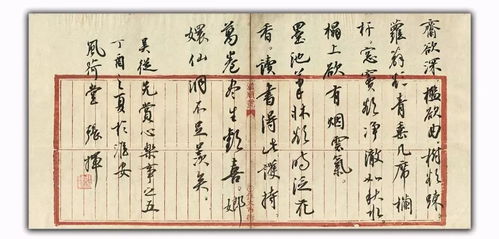 齋欲深檻欲曲樹欲疎
蘿薜欲青垂几席欄
杆窓竇欲净澈如秋水
榻上欲有烟雲氣
墨池筆床欲時泛花
香讀書得此護持
萬卷尽生歡喜嫏
嬛仙洞不足羨矣
吴從先賞心樂事之五
丁酉之夏於淮安
風荷堂張揮